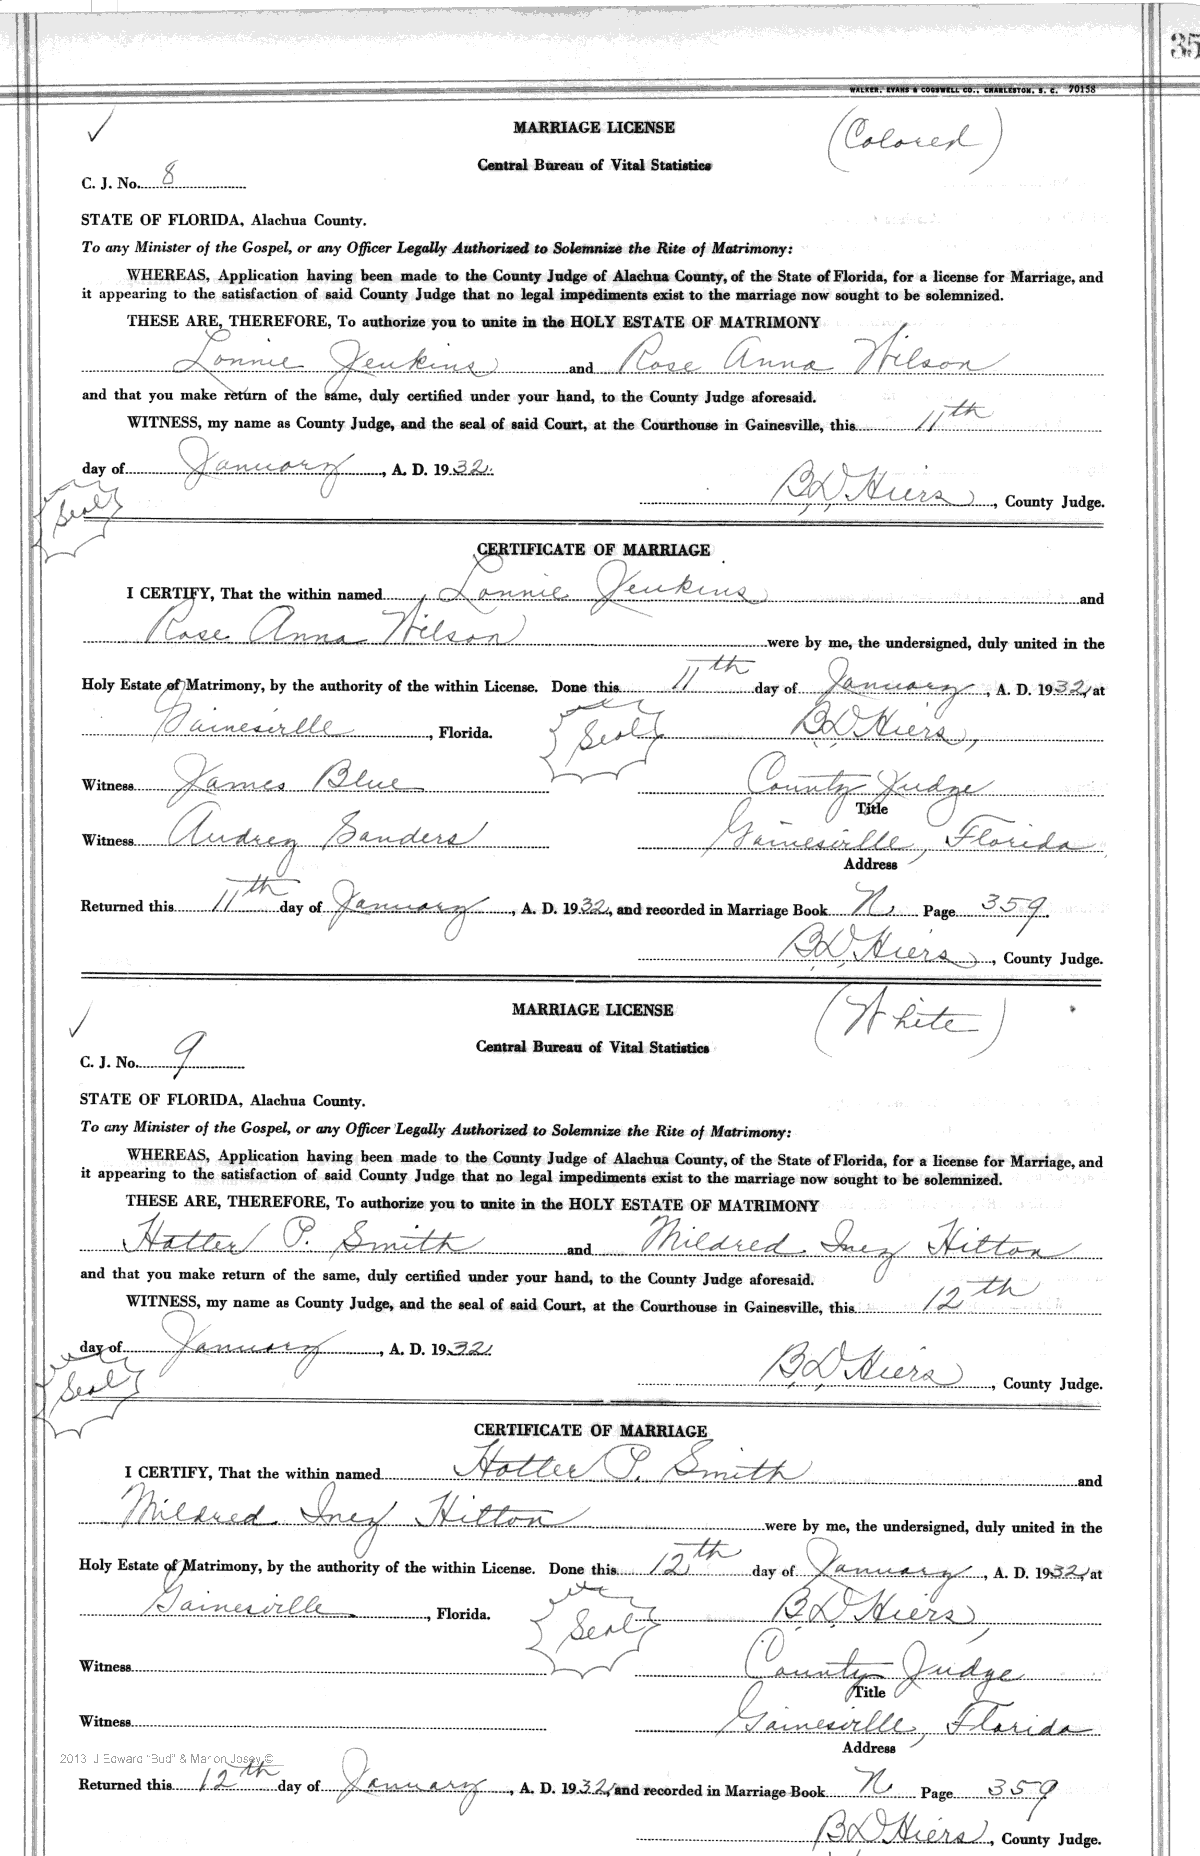 35
WALKER, EVANS & COGSWELL CO., CHARLESTON, S. C. 70158
MARRIAGE LICENSE
(Colored)
Central Bureau of Vital Statistics
C. J. No. 8
STATE OF FLORIDA, Alachua County.
To any Minister of the Gospel, or any Officer Legally Authorized to Solemnize the Rite of Matrimony:
WHEREAS, Application having been made to the County Judge of Alachua County, of the State of Florida, for a license for Marriage, and
it appearing to the satisfaction of said County Judge that no legal impediments exist to the marriage now sought to be solemnized.
THESE ARE, THEREFORE, To authorize you to unite in the HOLY ESTATE OF MATRIMONY
Lonnie Jenkins and Rose Anna Wilson
and that you make return of the same, duly certified under your hand, to the County Judge aforesaid.
WITNESS, my name as County Judge, and the seal of said Court, at the Courthouse in Gainesville, this 11th
day of January, A. D. 1932.
Seal
B.D. Hiers, County Judge.
CERTIFICATE OF MARRIAGE
I CERTIFY, That the within named Lonnie Jenkins and
Rose Anna Wilson were by me, the undersigned, duly united in the
Holy Estate of Matrimony, by the authority of the within License. Done this 11th day of January, A. D. 1932, at
Gainesville, Florida. Seal B.D. Hiers,
Witness James Blue County Judge
Title
Witness Audrey Sanders Gainesville, Florida
Address
Returned this 11th day of January, A. D. 1932, and recorded in Marriage Book N Page 359.
B.D. Hiers, County Judge.
MARRIAGE LICENSE
(White)
Central Bureau of Vital Statistics
C. J. No. 9
STATE OF FLORIDA, Alachua County.
To any Minister of the Gospel, or any Officer Legally Authorized to Solemnize the Rite of Matrimony:
WHEREAS, Application having been made to the County Judge of Alachua County, of the State of Florida, for a license for Marriage, and
it appearing to the satisfaction of said County Judge that no legal impediments exist to the marriage now sought to be solemnized.
THESE ARE, THEREFORE, To authorize you to unite in the HOLY ESTATE OF MATRIMONY
Hatter P. Smith and Mildred Inez Hilton
and that you make return of the same, duly certified under your hand, to the County Judge aforesaid.
WITNESS, my name as County Judge, and the seal of said Court, at the Courthouse in Gainesville, this 12th
day of January, A. D. 1932.
Seal
B.D. Hiers, County Judge.
CERTIFICATE OF MARRIAGE
I CERTIFY, That the within named Hatter P. Smith and
Mildred Inez Hilton were by me, the undersigned, duly united in the
Holy Estate of Matrimony, by the authority of the within License. Done this 12th day of January, A. D. 1932, at
Gainesville, Florida. Seal B.D. Hiers,
Witness County Judge
Title
Witness Gainesville, Florida
Address
2013 J Edward "Bud" & Marion Josey ©
Returned this 12th day of January, A. D. 1932, and recorded in Marriage Book N Page 359
B.D. Hiers, County Judge.